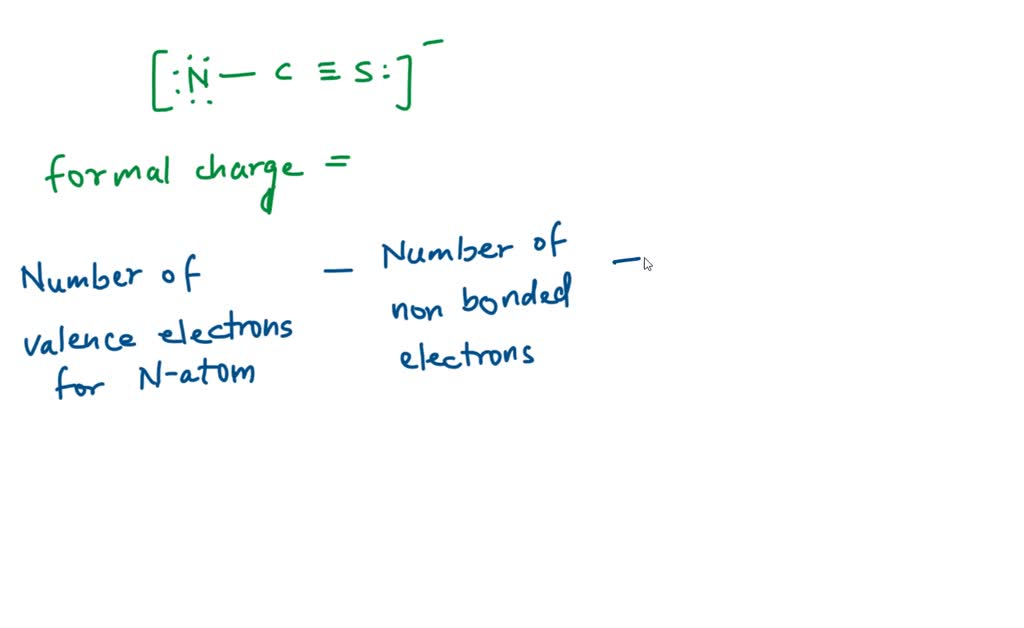 [:N̤̈ — C ≡ S:]⁻
formal charge =
Number of valence electrons for N-atom — Number of non bonded electrons —